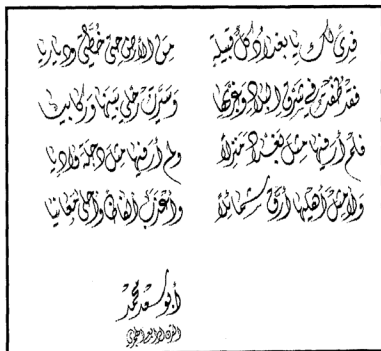 فدىً لك يا بغداد كل قبيلة من الأرض حتى خطتي ودياريا
فقد طفت في شرق البلاد وغربها وسيرت رحلي بينها وركابيا
فلم أر فيها مثل بغداد منزلاً ولم أر فيها مثل دجلة واديا
ولا مثل أهليها أرق شمائلاً وأعذب ألفاظاً وأحلى معانيا
أبو سعد محمد
القرن الرابع الهجري